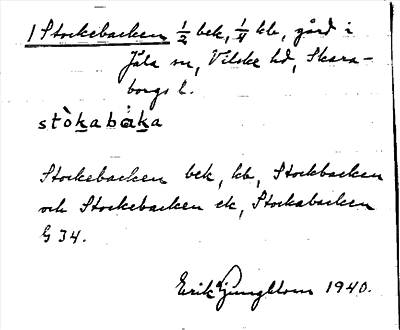 1 Stockebacken 1/2 bek, 1/4 kb, gård i
Jäla sn, Vilske hd, Skara-
borgs l.
stò̀kabåka
Stockebacken bek, kb, Stockbacken
och Stockebacken ek, Stockabacken
G 34.
Erik Ljungblom 1940.